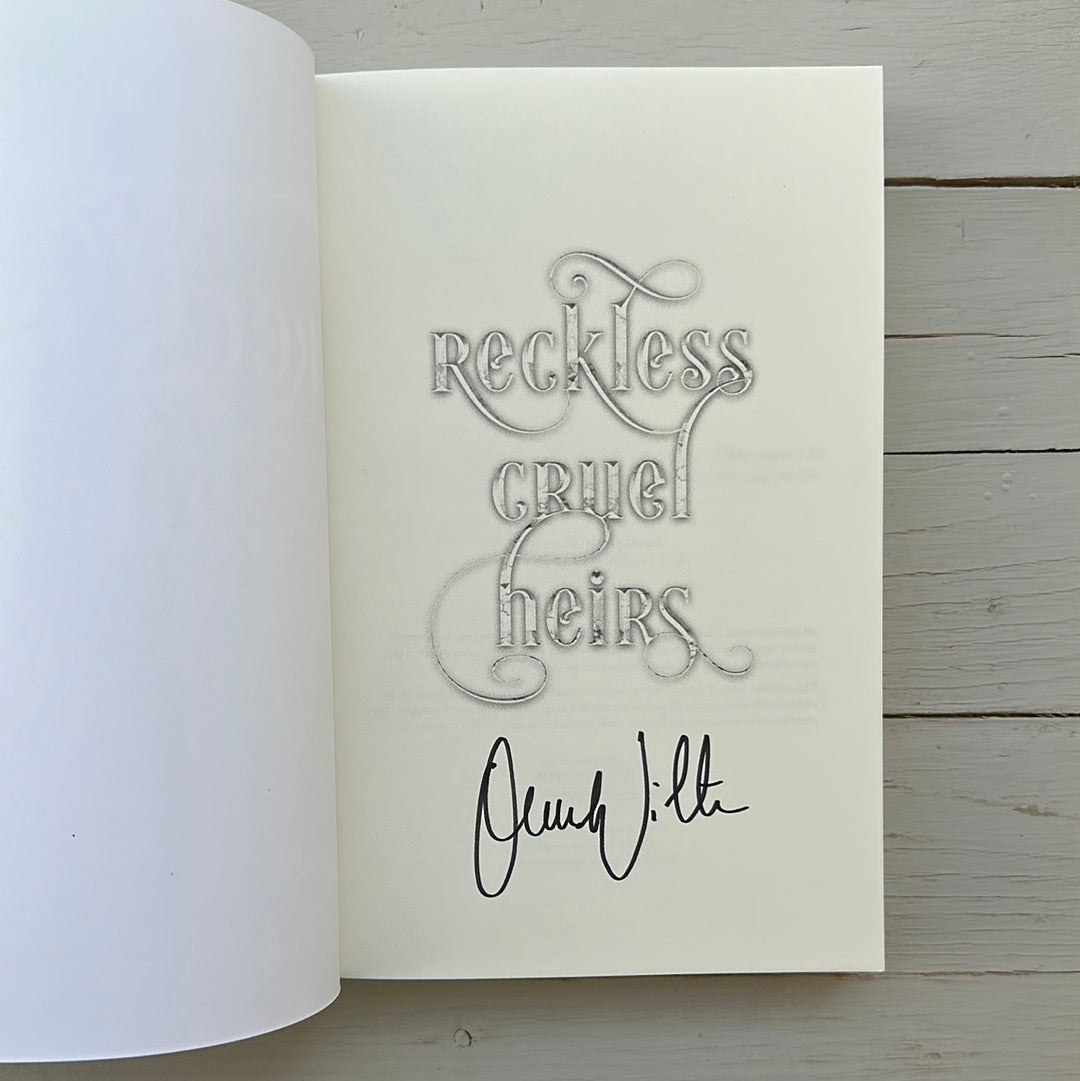 Reckless
Cruel
Heirs